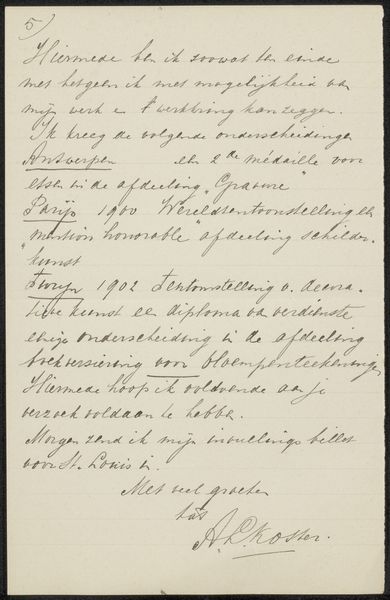 5)
Hiermede ben ik zoowat ten einde
met hetgeen ik met mogelijkheid van
mijn werk en werkkring kan zeggen.
Ik kreeg de volgende onderscheidingen
Antwerpen een 2de médaille voor
etsen in de afdeeling "Gravure"
Parijs 1900 Wereldtentoonstelling een
"mention honorable afdeeling schilder-
kunst
Turijn 1902 Tentoonstelling v. decora-
tieve kunst een diploma van verdienste
enige onderscheiding in de afdeeling
boekversiering voor bloempenteekeningen
Hiermede hoop ik voldoende aan je
verzoek voldaan te hebben.
Morgen zend ik mijn invullings billet
voor St. Louis in.
Met veel groeten
A.L. Koster.